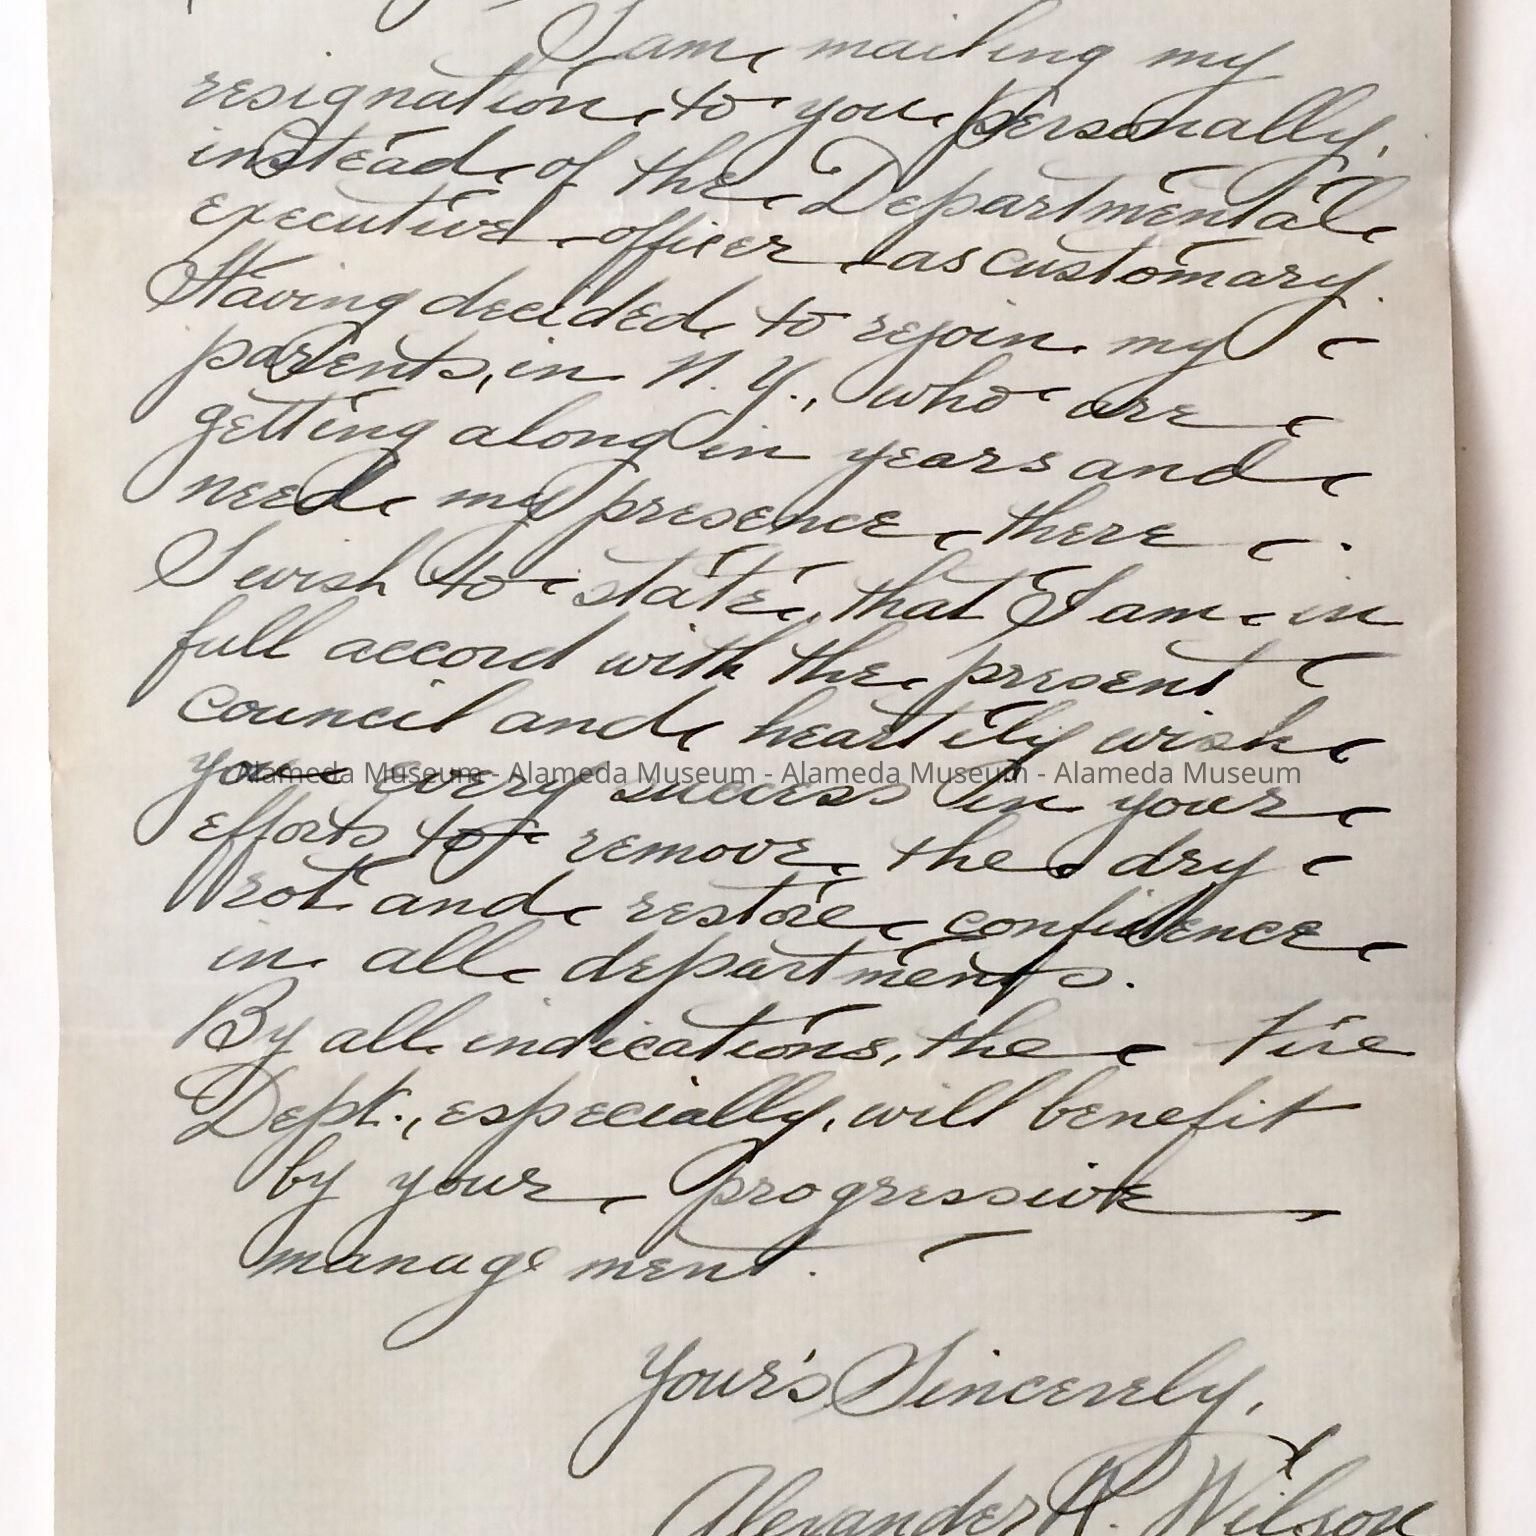 I am mailing my
resignation to you personally,
instead of the Departmental
executive officer as customary.
Having decided to rejoin my
parents, in N. Y., who are
getting along in years and
need my presence there.
I wish to state, that I am in
full accord with the present
council and heartily wish
you every success in your
Alameda Museum - Alameda Museum - Alameda Museum - Alameda Museum
efforts to remove the dry
rot and restore confidence
in all departments.
By all indications, the Fire
Dept., especially, will benefit
by your progressive
management.
Your's Sincerely,
Alexander R. Wilson